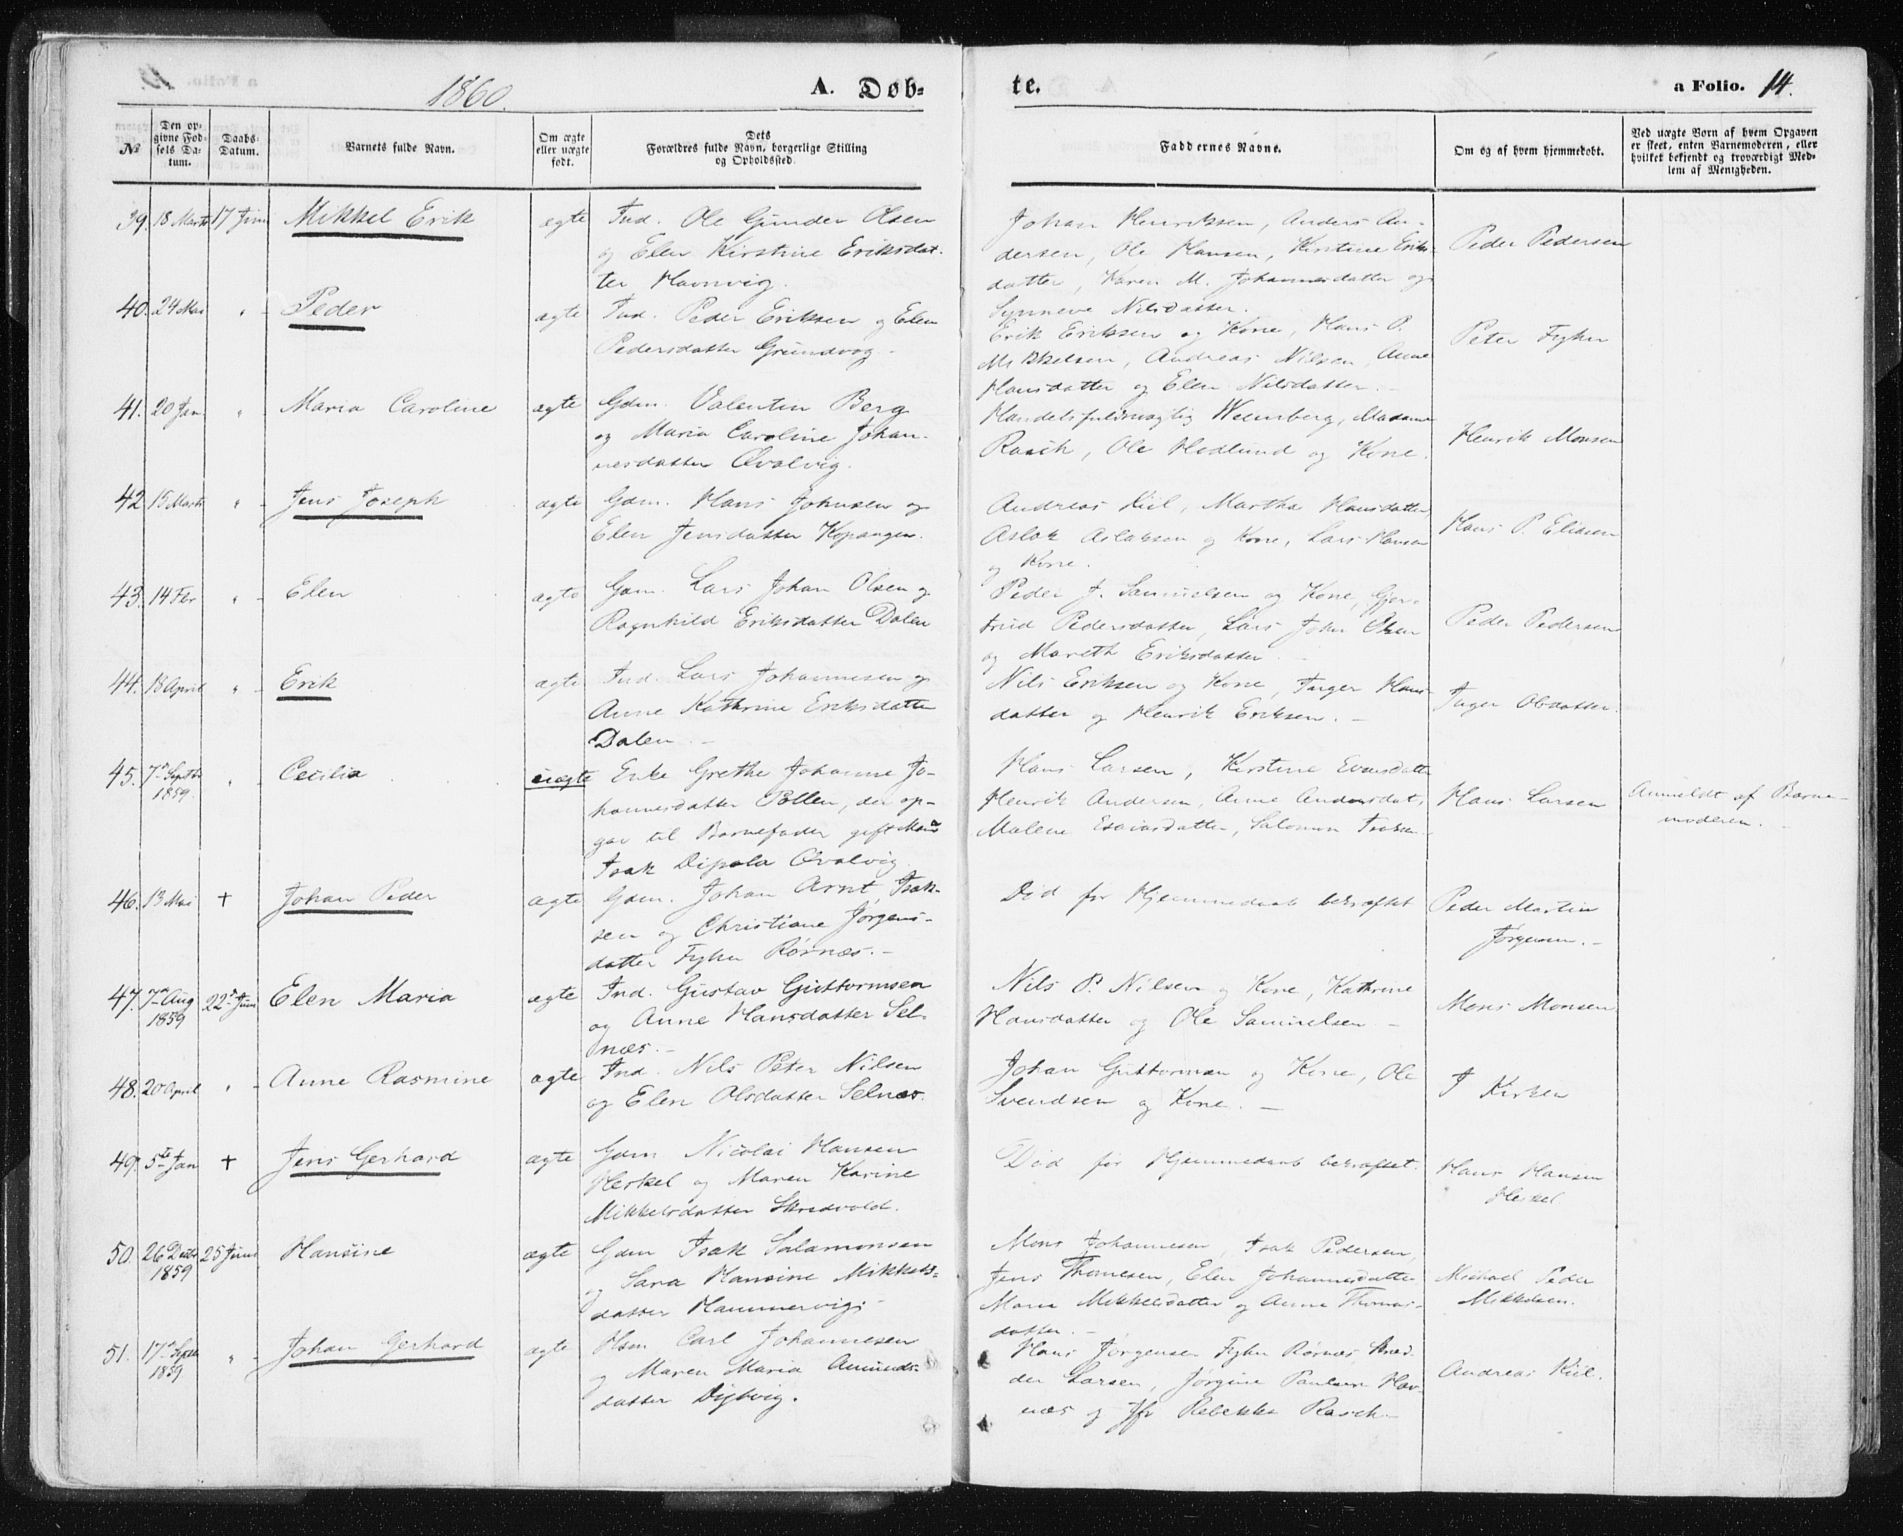 1860.
A. Døb-
te.
a Folio. 14.
№
Den op-
givne Fød-
sels Da-
tum.
Daabs-
Datum.
Barnets fulde Navn.
Om ægte
eller uægte
født.
Dets
Forældres fulde Navn, borgerlige Stilling
og Opholdssted.
Faddernes Navne.
Om og af hvem hjemmedøbt.
Ved uægte Børn af hvem Opgaven
er skeet, enten Barnemoderen, eller
hvilket bekjendt og troværdigt Med-
lem af Menigheden.
39. 18 Marts 17 Juni Mikkel Erik ægte Ind. Ole Gunder Olsen
og Elen Kirstine Eriksdat-
ter Havnvig.
Johan Henriksen, Anders An-
dersen, Ole Hansen, Kirstine Eriks-
datter, Karen M. Johannesdatter og
Synneve Nilsdatter.
Peder Pedersen
40. 24 Mai " Peder ægte Ind. Peder Eriksen og Elen
Pedersdatter Grundvog.
Erik Eriksen og Kone, Hans P.
Mikkelsen, Andreas Nilsen, Anne
Hansdatter og Elen Nilsdatter.
Peter Fyhn
41. 20 Jan " Maria Caroline ægte Gdm. Valentin Berg
og Maria Caroline Johan-
nesdatter Qvalvig.
Handelsfuldmægtig Weinsberg, Madame
Rasch, Ole Hedlund og Kone.
Henrik Monsen
42 15 Marts " Jens Joseph ægte Gdm. Hans Johnsen og
Elen Jensdatter Kopangen.
Andreas Kiil, Martha Hansdatter,
Aslak Aslaksen og Kone, Lars Hansen
og Kone.
Hans P. Eliasen
43. 14 Feb " Elen ægte Gdm. Lars Johan Olsen og
Ragnhild Eriksdatter Dalen
Peder J. Samuelsen og Kone, Gjer-
trud Pedersdatter, Lars John Olsen
og Mareth Eriksdatter.
Peder Pedersen
44. 18 April " Erik ægte Ind. Lars Johannesen og
Anne Kathrine Eriksdatter
Dalen.
Nils Eriksen og Kone, Inger Hans-
datter og Henrik Eriksen.
Inger Olsdatter.
45. 7de Septbr " Cecilia uægte Enke Grethe Johanne Jo-
1859.
hannesdatter Pollen, der op-
gav til Barnefader gift Mand
Isak Dipola Qvalvig.
Hans Larsen, Kirstine Evensdatter
Henrik Andersen, Anne Andersdat,
Malene Esaiasdatter, Salomon Isaksen
Hans Larsen
Anmeldt af Barne-
moderen.
46. 13 Mai + Johan Peder ægte Gdm. Johan Arnt Isak-
sen og Christiane Jørgens-
datter Fyhn Rørnæs.
Død før Hjemmedaab bekræftet
Peder Martin
Jørgensen.
47. 7de Aug 22de Juni Elen Maria ægte Ind. Gustav Guttormsen
1859
og Anne Hansdatter Sel-
næs.
Nils P. Nilsen og Kone, Kathrine
Hansdatter og Ole Samuelsen
Mons Monsen
48. 20 April " Anne Rasmine ægte Ind. Nils Peter Nilsen
og Elen Olsdatter Selnæs.
Johan Guttormsen og Kone, Ole
Svendsen og Kone.
I Kirken
49. 5te Jan + Jens Gerhard ægte Gdm Nicolai Hansen
Heskel og Maren Karine
Mikkelsdatter Skredvold.
Død før Hjemmedaab bekræftet.
Hans Hansen
Heskel
50. 26 Decbr 25 Juni Hansine ægte Gdm Isak Salamonsen
1859
og Sara Hansine Mikkels-
datter Hammervig.
Mons Johannesen, Isak Pedersen,
Jens Thomesen, Elen Johannesdatter
Maria Mikkelsdatter og Anne Thomas-
datter.
Michael Peder
Mikkelsen.
51. 17de Septbr " Johan Gerhard ægte Hsm Carl Johannesen
1859
og Maren Maria Amunds-
datter Dybvig.
Hans Jørgensen Fyhn Rørnæs
Larsen, Jørgine Paulsen Hav-
næs og Jfr Rebekka Rasch
Andreas Kiil.